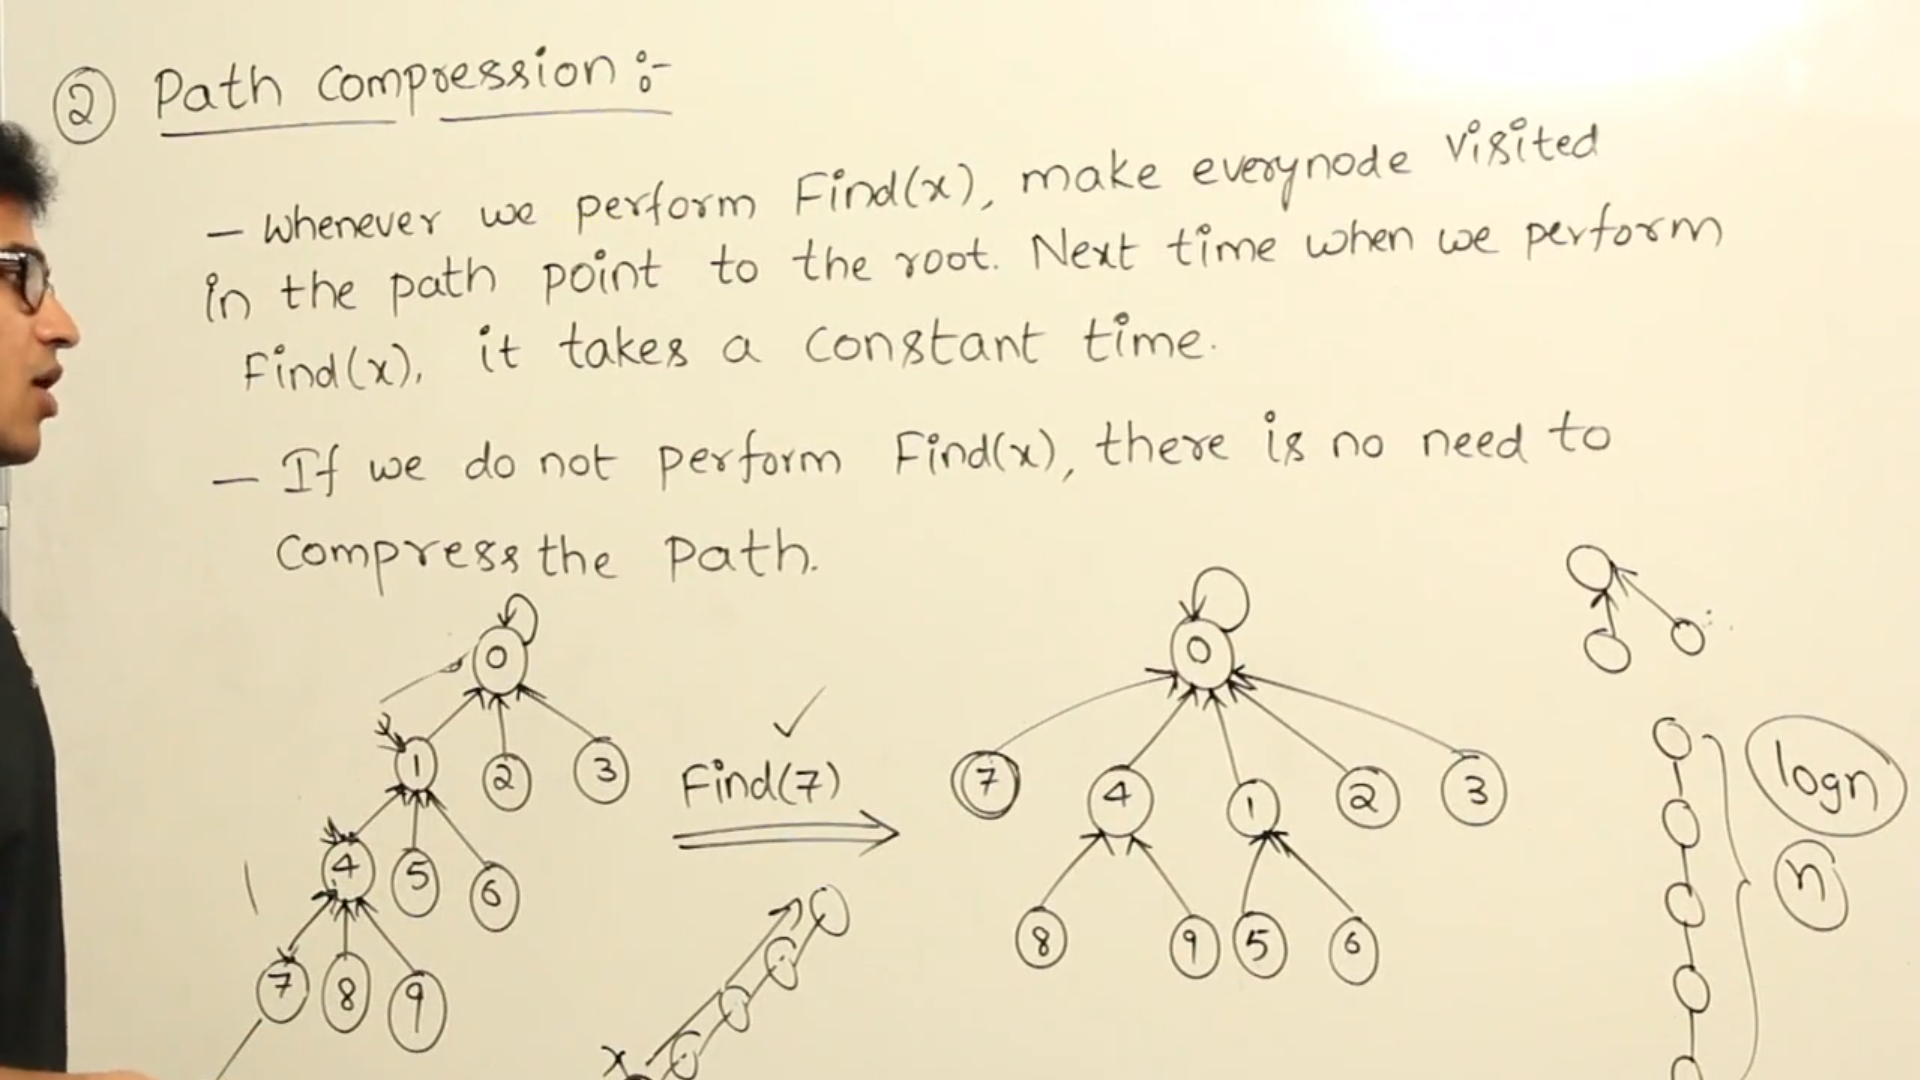 ② Path compression :-
- Whenever we perform Find(x), make everynode visited
in the path point to the root. Next time when we perform
Find(x), it takes a constant time.
- If we do not perform Find(x), there is no need to
compress the path.
0
1 2 3
4 5 6
7 8 9
Find(7)
0
7 4 1 2 3
8 9 5 6
x
logn
n